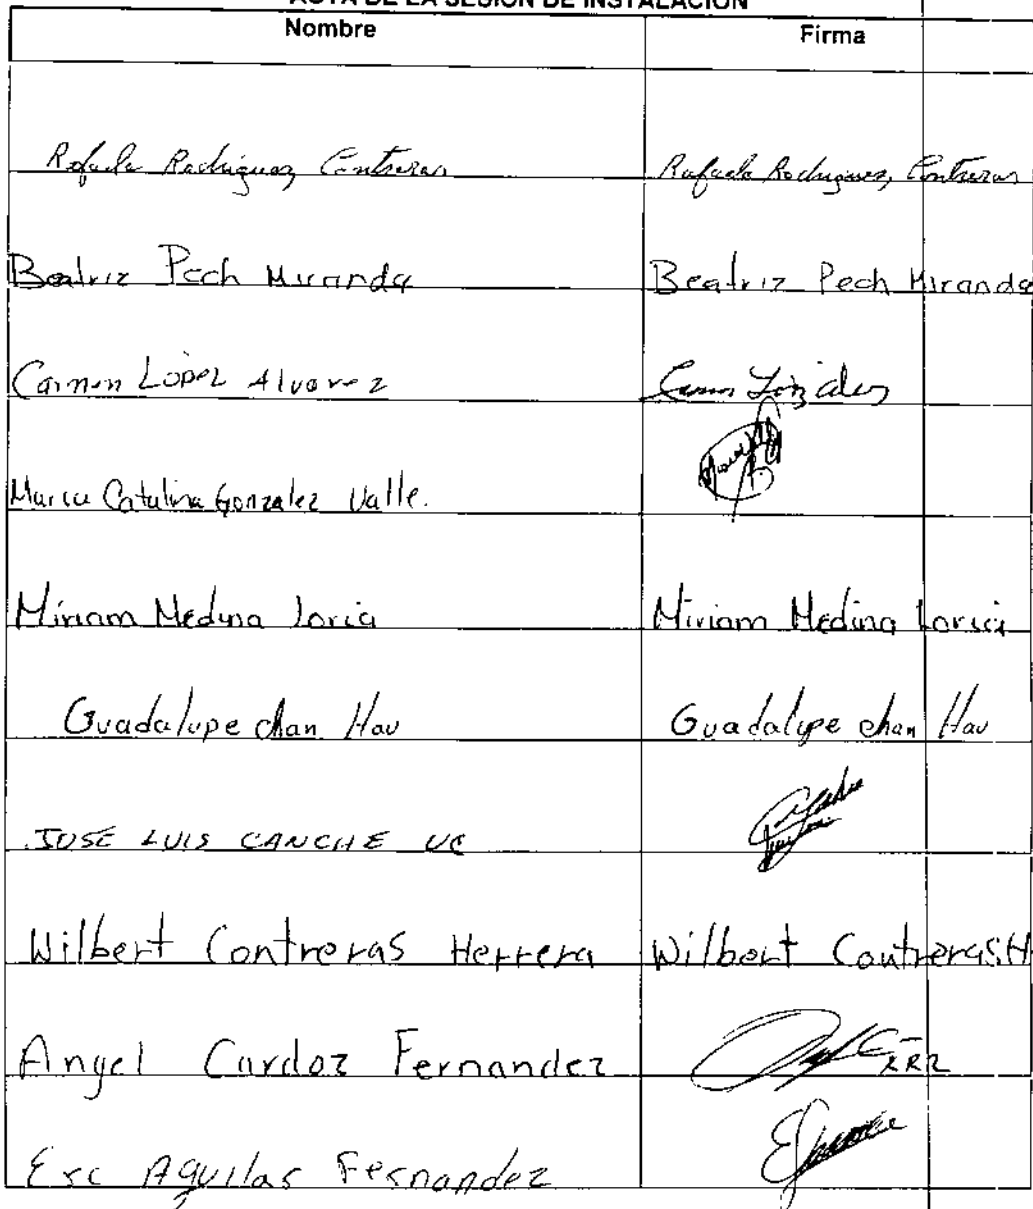 ACTA DE LA SESIÓN DE INSTALACIÓN
Nombre Firma
Rafaela Rodriguez Contreras Rafaela Rodriguez Contreras
Beatriz Pech Miranda Beatriz Pech Miranda
Carmen López Alvarez
Maria Catalina Gonzalez Valle.
Miriam Medina Loria Miriam Medina Loria
Guadalupe chan Hau Guadalupe chan Hau
JOSE LUIS CANCHE UC
Wilbert Contreras Herrera Wilbert Contreras H
Angel Cardoz Fernandez
Eric Aguilar Fernandez